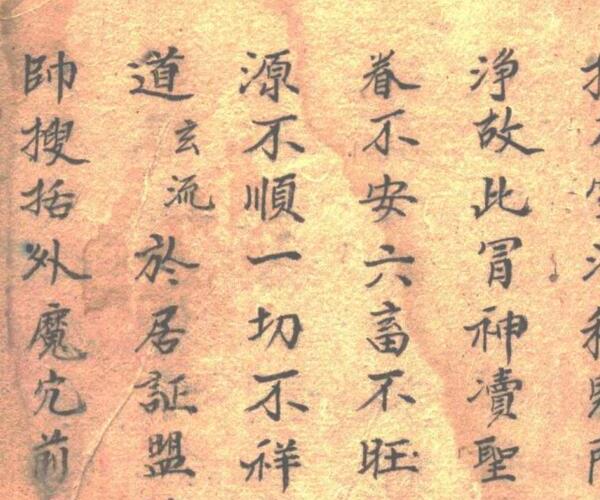 淨故此冒神凟聖
眷不安六畜不旺
源不順一切不祥
道玄流於居証盟
帥搜括外魔宄前